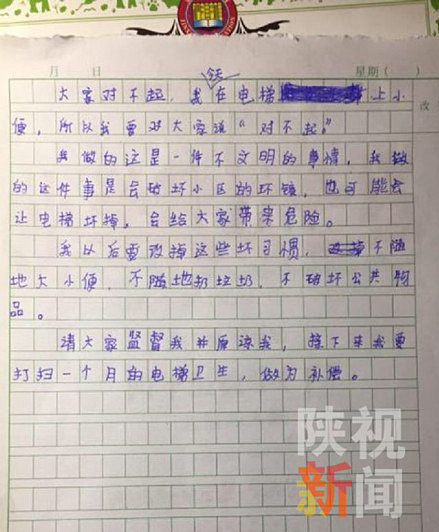 月 日 星期( )
大家对不起，我在电梯上小
改
便，所以我要对大家说“对不起。”
我做的这是一件不文明的事情，我做
的这件事是会破坏小区的环境，也可能会
让电梯坏掉，会给大家带来危险。
我以后要改掉这些坏习惯，不随
地大小便，不随地扔垃圾，不破坏公共物
品。
请大家监督我并原谅我，接下来我要
打扫一个月的电梯卫生，做为补偿。
陕视
新闻